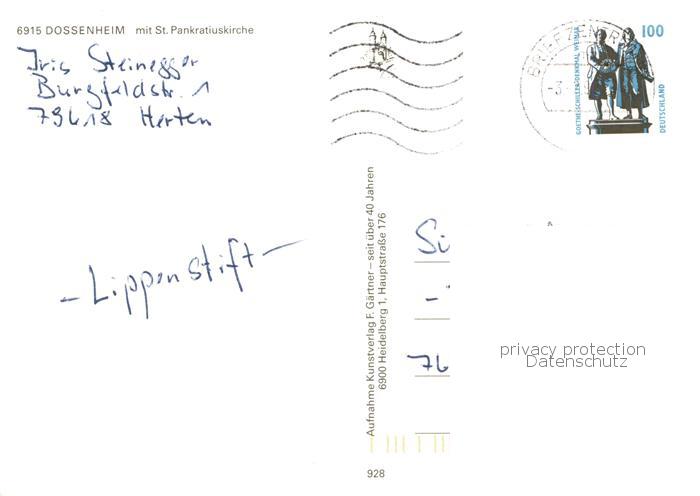 6915 DOSSENHEIM mit St. Pankratiuskirche
Iris Steinegger
Burgfeldstr. 1
79618 Herten
BRIEFZENTR
100
GOETHE-SCHILLER-DENKMAL WEIMAR
DEUTSCHLAND
- Lippenstift -
Aufnahme Kunstverlag F. Gärtner – seit über 40 Jahren
6900 Heidelberg 1, Hauptstraße 176
Si
-
76
privacy protection
Datenschutz
928